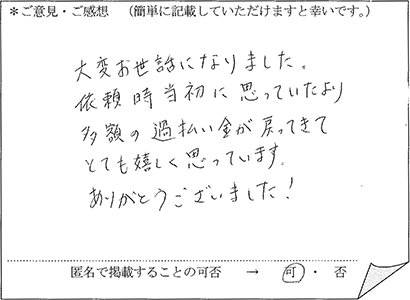 *ご意見・ご感想　(簡単に記載していただけますと幸いです。)
大変お世話になりました。
依頼時当初に思っていたより
多額の過払い金が戻ってきて
とても嬉しく思っています。
ありがとうございました!
匿名で掲載することの可否　→　可 ・ 否